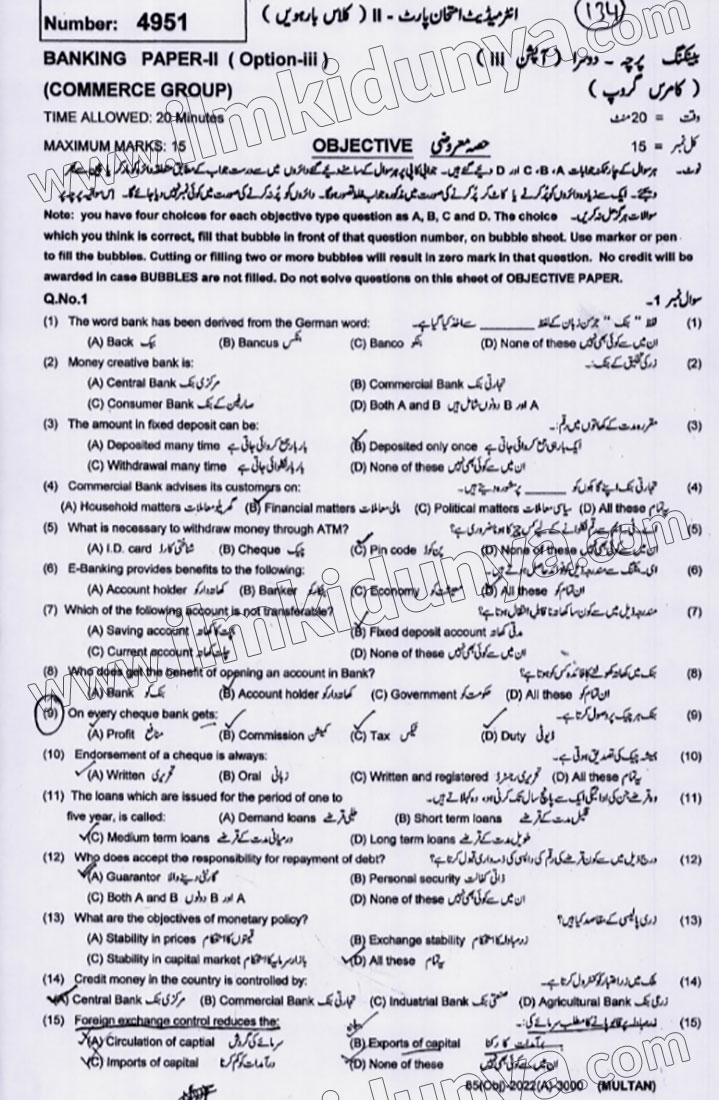 Number: 4951
انٹرمیڈیٹ امتحان پارٹ - II ( کلاس بارہویں )
134
BANKING PAPER-II ( Option-iii )
بینکنگ پرچہ - دوسرا ( آپشن III )
(COMMERCE GROUP)
( کامرس گروپ )
TIME ALLOWED: 20 Minutes
وقت = 20 منٹ
MAXIMUM MARKS: 15 OBJECTIVE حصہ معروضی
کل نمبر = 15
نوٹ۔
Note: you have four choices for each objective type question as A, B, C and D. The choice
which you think is correct, fill that bubble in front of that question number, on bubble sheet. Use marker or pen
to fill the bubbles. Cutting or filling two or more bubbles will result in zero mark in that question. No credit will be
awarded in case BUBBLES are not filled. Do not solve questions on this sheet of OBJECTIVE PAPER.
Q.No.1 سوال نمبر 1۔
(1) The word bank has been derived from the German word: لفظ " بنک " جرمن زبان کے لفظ ________ سے اخذ کیا گیا ہے۔ (1)
(A) Back بیک (B) Bancus بنکس (C) Banco بنکو (D) None of these ان میں سے کوئی بھی نہیں
(2) Money creative bank is: زر کی تخلیق کے بنک: (2)
(A) Central Bank مرکزی بنک (B) Commercial Bank تجارتی بنک
(C) Consumer Bank صارفین کے بنک (D) Both A and B A اور B دونوں شامل ہیں
(3) The amount in fixed deposit can be: مقررہ مدت کے کھاتوں میں رقم: (3)
(A) Deposited many time بار بار جمع کروائی جاتی ہے (B) Deposited only once ایک بار ہی جمع کروائی جاتی ہے
(C) Withdrawal many time بار بار نکلوائی جاتی ہے (D) None of these ان میں سے کوئی بھی نہیں
(4) Commercial Bank advises its customers on: تجارتی بنک اپنے گاہکوں کو ________ پر مشورہ دیتے ہیں۔ (4)
(A) Household matters گھریلو معاملات (B) Financial matters مالی معاملات (C) Political matters سیاسی معاملات (D) All these یہ تمام
(5) What is necessary to withdraw money through ATM? اے ٹی ایم سے رقم نکلوانے کے لیے کس چیز کا ہونا ضروری ہے؟ (5)
(A) I.D. card شناختی کارڈ (B) Cheque چیک (C) Pin code پن کوڈ (D) None of these ان میں سے کوئی بھی نہیں
(6) E-Banking provides benefits to the following: (6)
(A) Account holder کھاتہ دار کو (B) Banker بینکار کو (C) Economy معیشت کو (D) All these ان تمام کو
(7) Which of the following account is not transferable? مندرجہ ذیل میں سے کون سا کھاتہ ناقابل انتقال ہوتا ہے؟ (7)
(A) Saving account بچت کا کھاتہ (B) Fixed deposit account مدتی کھاتہ
(C) Current account چلت کھاتہ (D) None of these ان میں سے کوئی بھی نہیں
(8) Who does get the benefit of opening an account in Bank? بنک میں کھاتہ کھولنے کا فائدہ کس کو ہوتا ہے؟ (8)
(A) Bank بنک کو (B) Account holder کھاتہ دار کو (C) Government حکومت کو (D) All these ان تمام کو
(9) On every cheque bank gets: بنک ہر چیک پر وصول کرتا ہے۔ (9)
(A) Profit منافع (B) Commission کمیشن (C) Tax ٹیکس (D) Duty ڈیوٹی
(10) Endorsement of a cheque is always: ہمیشہ چیک کی تصدیق ہوتی ہے۔ (10)
(A) Written تحریری (B) Oral زبانی (C) Written and registered تحریری رجسٹرڈ (D) All these یہ تمام
(11) The loans which are issued for the period of one to وہ قرضے جن کی ادائیگی ایک سے پانچ سال تک کرنی ہو، وہ کہلاتے ہیں۔ (11)
five year, is called: (A) Demand loans طلبی قرضے (B) Short term loans قلیل مدت کے قرضے
(C) Medium term loans درمیانی مدت کے قرضے (D) Long term loans طویل مدت کے قرضے
(12) Who does accept the responsibility for repayment of debt? درج ذیل میں سے کون قرضے کی رقم کی واپسی کی ذمہ داری قبول کرتا ہے؟ (12)
(A) Guarantor گارنٹی دینے والا (B) Personal security ذاتی کفالت
(C) Both A and B A اور B دونوں (D) None of these ان میں سے کوئی بھی نہیں
(13) What are the objectives of monetary policy? زری پالیسی کے مقاصد کیا ہیں؟ (13)
(A) Stability in prices قیمتوں کا استحکام (B) Exchange stability زرمبادلہ کا استحکام
(C) Stability in capital market بازار سرمایہ کا استحکام (D) All these یہ تمام
(14) Credit money in the country is controlled by: ملک میں زر اعتبار کو کنٹرول کرتا ہے۔ (14)
(A) Central Bank مرکزی بنک (B) Commercial Bank تجارتی بنک (C) Industrial Bank صنعتی بنک (D) Agricultural Bank زرعی بنک
(15) Foreign exchange control reduces the: زرمبادلہ پر قابو پانے کا مطلب سرمائے کی: (15)
(A) Circulation of captial سرمائے کی گردش (B) Exports of capital برآمدات کا رکنا
(C) Imports of capital درآمدات کو کم کرنا (D) None of these ان میں سے کوئی بھی نہیں
85(Obj)-2022(A)-3000 (MULTAN)
www.ilmkidunya.com
www.ilmkidunya.com
www.ilmkidunya.com